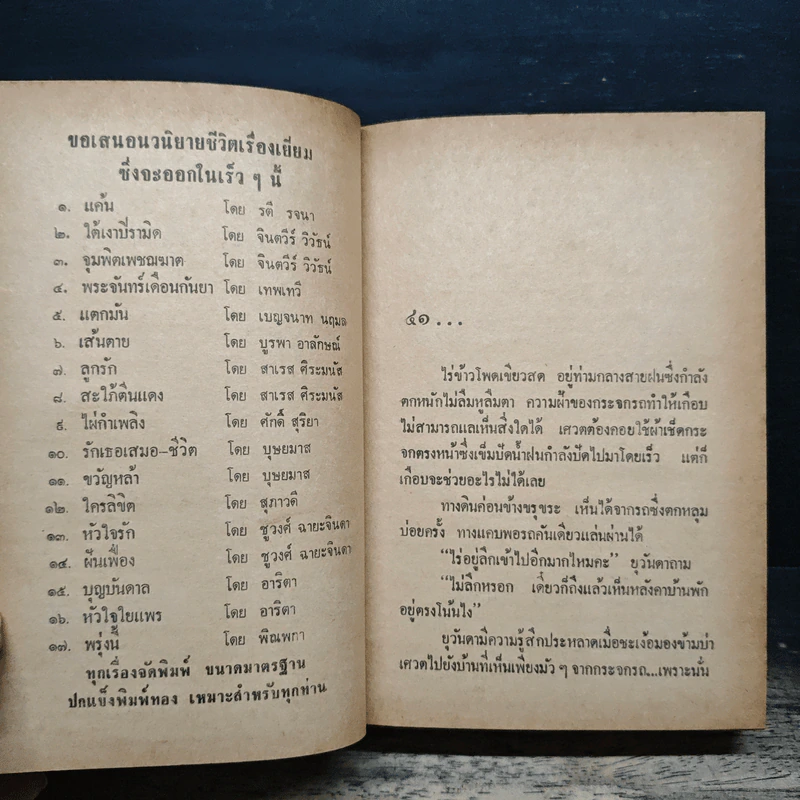 ขอเสนอนวนิยายชีวิตเรื่องเยี่ยม
ซึ่งจะออกในเร็ว ๆ นี้
๑. แค้น โดย รตี รจนา
๒. ใต้เงาปิรามิด โดย จินตวีร์ วิวัธน์
๓. จุมพิตเพชฌฆาต โดย จินตวีร์ วิวัธน์
๔. พระจันทร์เดือนกันยา โดย เทพเทวี
๕. แตกมัน โดย เบญจนาท นฤมล
๖. เส้นตาย โดย บูรพา อาลักษณ์
๗. ลูกรัก โดย สาเรส ศิระมนัส
๘. สะใภ้ตีนแดง โดย สาเรส ศิระมนัส
๙. ไผ่กำเพลิง โดย ศักดิ์ สุริยา
๑๐. รักเธอเสมอ-ชีวิต โดย บุษยมาส
๑๑. ขวัญหล้า โดย บุษยมาส
๑๒. ใครลิขิต โดย สุภาวดี
๑๓. หัวใจรัก โดย ชูวงศ์ ฉายะจินดา
๑๔. ฝันเฟื่อง โดย ชูวงศ์ ฉายะจินดา
๑๕. บุญบันดาล โดย อาริตา
๑๖. หัวใจใยแพร โดย อาริตา
๑๗. พรุ่งนี้ โดย พิณพกา
ทุกเรื่องจัดพิมพ์ ขนาดมาตรฐาน
ปกแข็งพิมพ์ทอง เหมาะสำหรับทุกท่าน
๔๑...
ไร่ข้าวโพดเขียวสด อยู่ท่ามกลางสายฝนซึ่งกำลัง
ตกหนักไม่ลืมหูลืมตา ความฝ้าของกระจกรถทำให้เกือบ
ไม่สามารถแลเห็นสิ่งใดได้ เศวตต้องคอยใช้ผ้าเช็ดกระ
จกตรงหน้าซึ่งเข็มปัดน้ำฝนกำลังปัดไปมาโดยเร็ว แต่ก็
เกือบจะช่วยอะไรไม่ได้เลย
ทางดินค่อนข้างขรุขระ เห็นได้จากรถซึ่งตกหลุม
บ่อยครั้ง ทางแคบพอรถคันเดียวแล่นผ่านได้
“ไร่อยู่ลึกเข้าไปอีกมากไหมคะ” ยุวันดาถาม
“ไม่ลึกหรอก เดี๋ยวก็ถึงแล้วเห็นหลังคาบ้านพัก
อยู่ตรงโน้นไง”
ยุวันดามีความรู้สึกประหลาดเมื่อชะเง้อมองข้ามบ่า
เศวตไปยังบ้านที่เห็นเพียงมัว ๆ จากกระจกรถ...เพราะนั่น